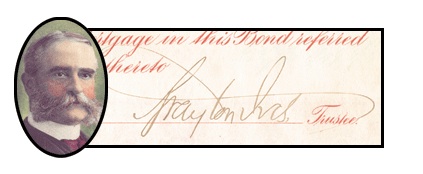 tgage in this Bond referred
thereto
Brayton Ives
Trustee.